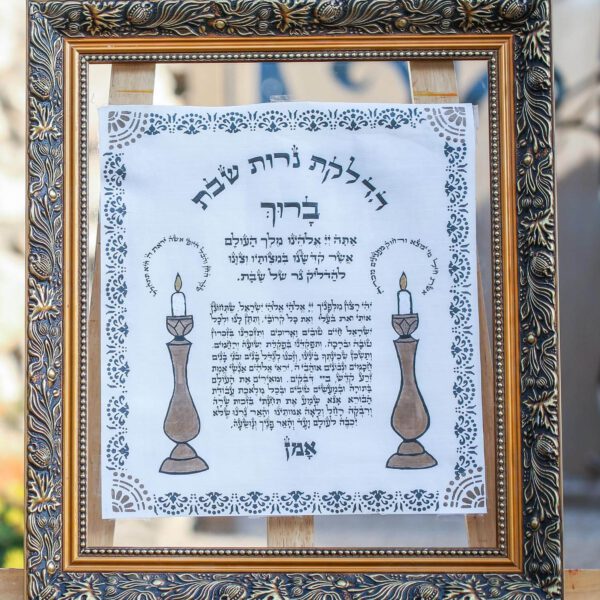 הדלקת נרות שבת
בָּרוּךְ
אַתָּה יְיָ אֱלֹהֵינוּ מֶלֶךְ הָעוֹלָם
אֲשֶׁר קִדְּשָׁנוּ בְּמִצְוֹתָיו וְצִוָּנוּ
לְהַדְלִיק נֵר שֶׁל שַׁבָּת.
יְהִי רָצוֹן מִלְּפָנֶיךָ יְיָ אֱלֹהַי אֱלֹהֵי יִשְׂרָאֵל שֶׁתְּחוֹנֵן
אוֹתִי וְאֶת בַּעְלִי וְאֶת כָּל קְרוֹבַי. וְתִתֵּן לָנוּ וּלְכָל
יִשְׂרָאֵל חַיִּים טוֹבִים וַאֲרוּכִים. וְתִזְכְּרֵנוּ בְּזִכְרוֹן
טוֹבָה וּבְרָכָה. וְתִפְקְדֵנוּ בִּפְקֻדַּת יְשׁוּעָה וְרַחֲמִים.
וְתַשְׁכֵּן שְׁכִינָתְךָ בֵּינֵינוּ. וְזַכֵּנוּ לְגַדֵּל בָּנִים וּבְנֵי בָנִים
חֲכָמִים וּנְבוֹנִים אוֹהֲבֵי ה'. יִרְאֵי אֱלֹהִים אַנְשֵׁי אֱמֶת
זֶרַע קֹדֶשׁ בַּיְיָ דְּבֵקִים. וּמְאִירִים אֶת הָעוֹלָם
בַּתּוֹרָה וּבְמַעֲשִׂים טוֹבִים וּבְכָל מְלֶאכֶת עֲבוֹדַת
הַבּוֹרֵא אָנָּא שְׁמַע אֶת תְּחִנָּתִי בִּזְכוּת שָׂרָה
וְרִבְקָה רָחֵל וְלֵאָה אִמּוֹתֵינוּ וְהָאֵר נֵרֵנוּ שֶׁלֹּא
יִכְבֶּה לְעוֹלָם וָעֶד וְהָאֵר פָּנֶיךָ וְנִוָּשֵׁעָה.
אָמֵן